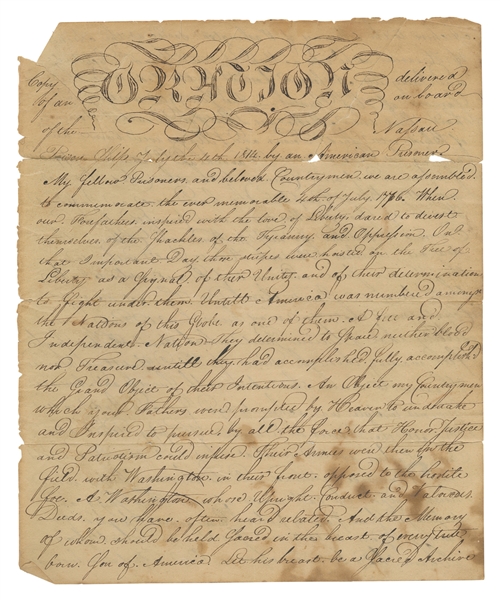 Copy of an ORATION delivered on board
of the Nassau
Prison Ship July the 4th 1814 by an American Prisoner
My fellow Prisoners and beloved Countrymen we are assembled
to commemorate the ever memorable 4th of July 1776 When
our Forefathers inspired with the love of Liberty dared to divest
themselves of the Shackles of the Tyranny and Oppression On
that important Day three stripes were hoisted on the Tree of
Liberty as a Signal of their Unity and of their determination
to fight under them Untill America was numbered amongst
the Nations of this Globe as one of them A free and
Independent Nation They determined to Spare neither blood
nor Treasure untill they had accomplished fully accomplish'd
the Grand Object of their Intentions An Object my Countrymen
which your Fathers were prompted by Heaven to undertake
and Inspired to pursue by all the force that Honor justice
and Patriotism could infuse Their Armies were then in the
field with Washington in their front opposed to the hostile
foe A Washington whose Upright Conduct and Valorous
Deeds you have often heard related And the Memory
of whom should be held Sacred in the breast of every true
born Son of America Let his breast be a Sacred Archive